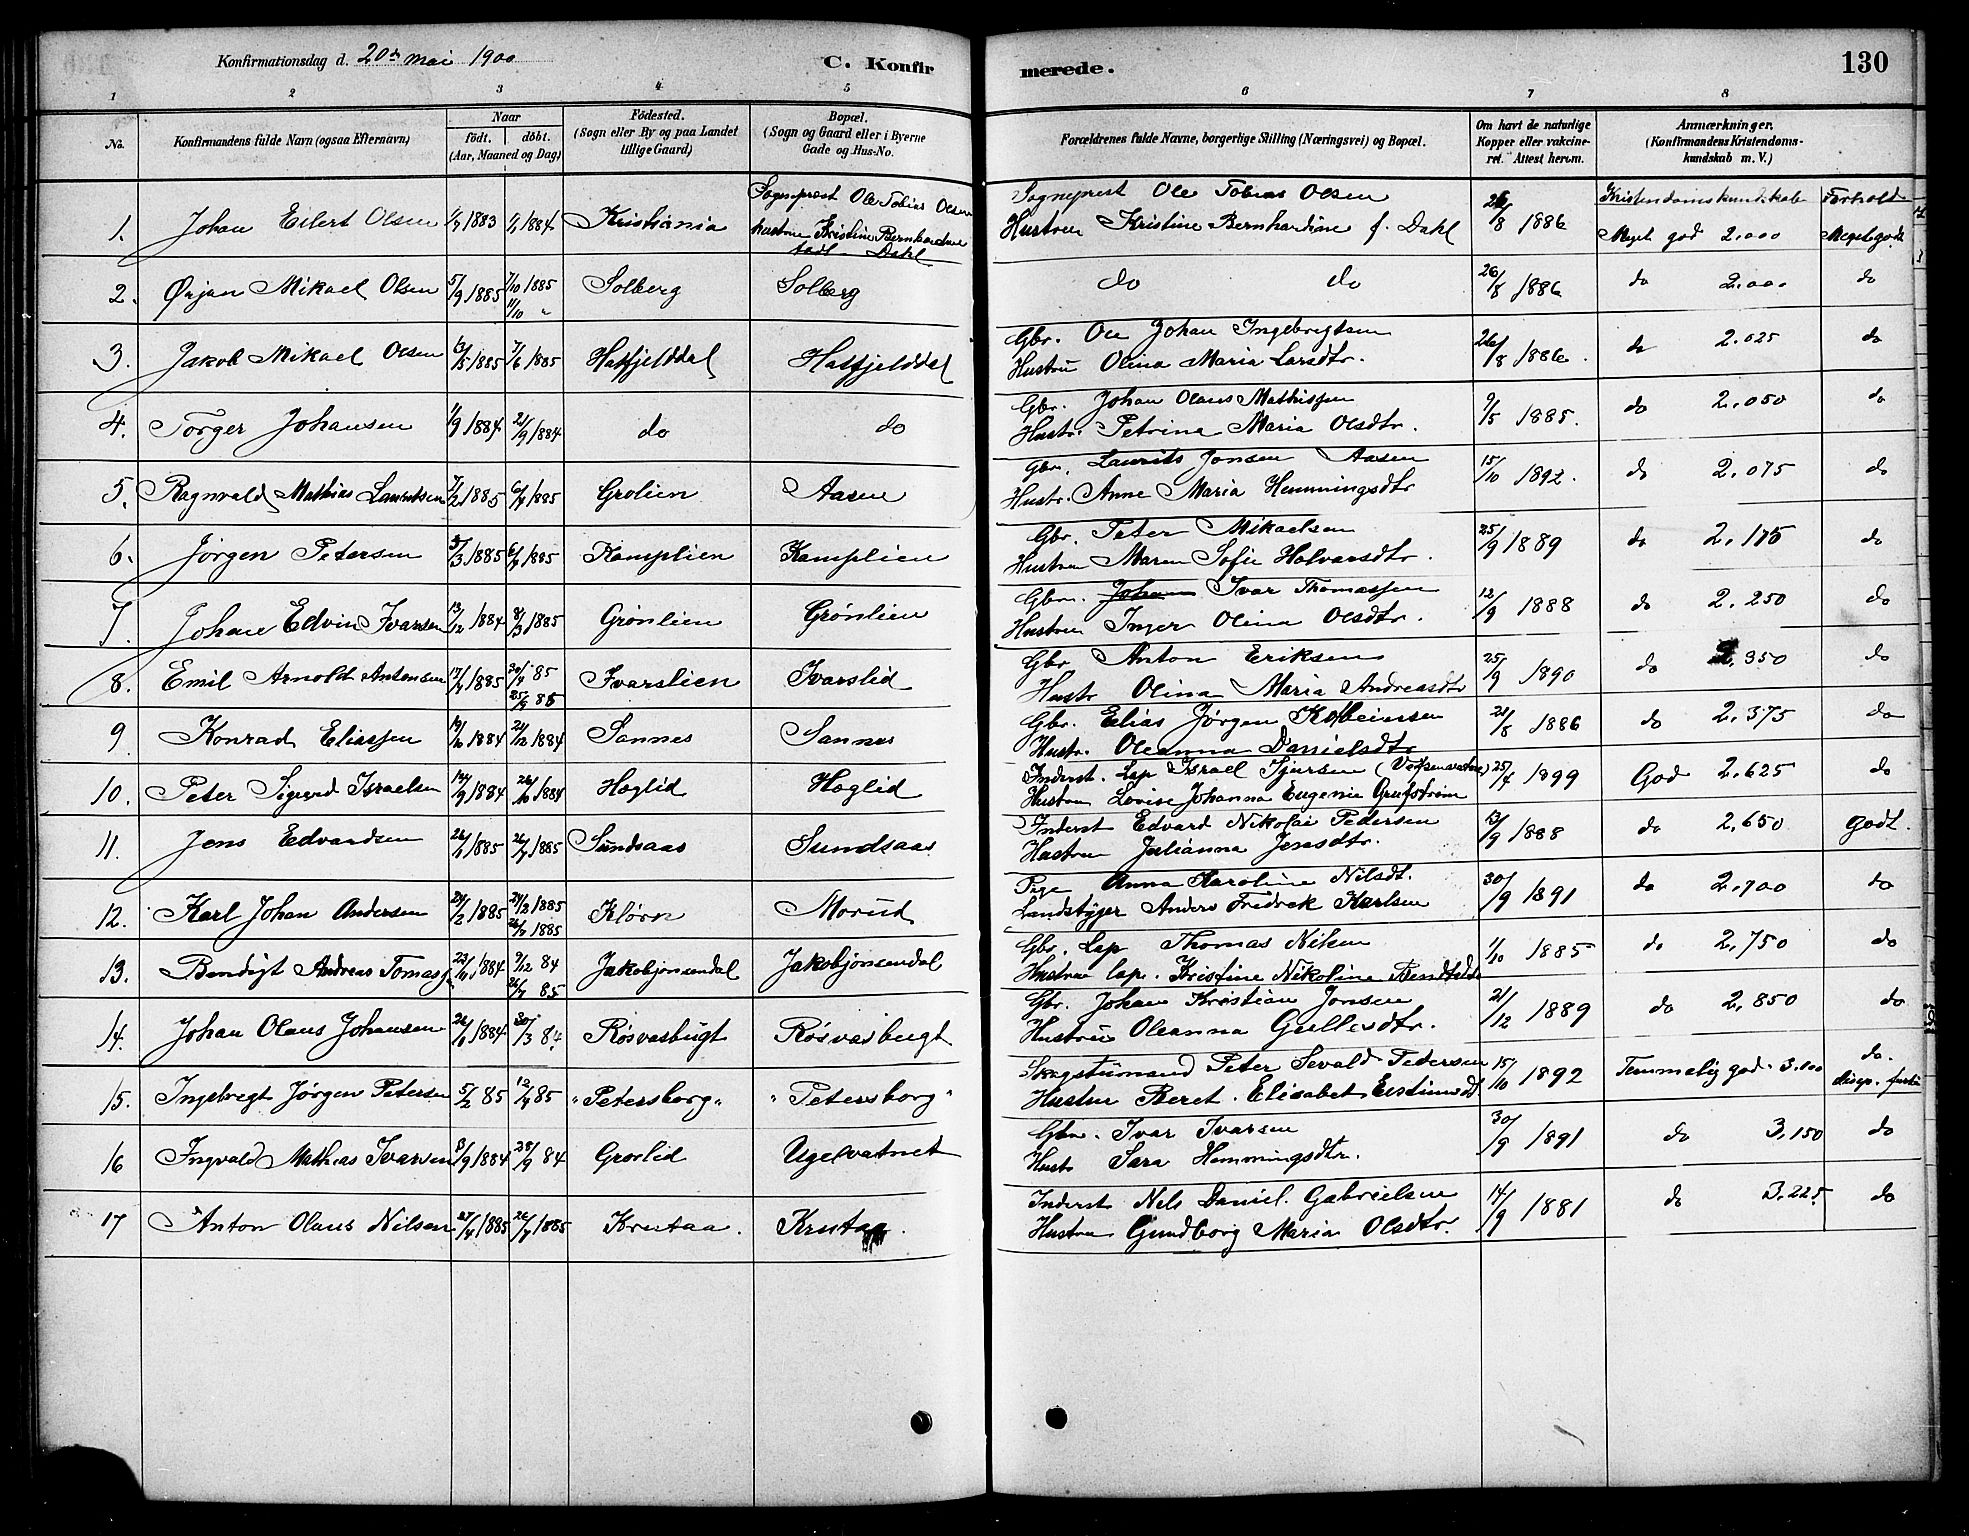 Konfirmationsdag d. 20de mai 1900
C. Konfirmerede.
130
1 2 3 4 5 6 7 8
No.
Konfirmandens fulde Navn (ogsaa Efternavn)
Naar
født. døbt.
(Aar, Maaned og Dag)
Fødested.
(Sogn eller By og paa Landet
tillige Gaard)
Bopæl.
(Sogn og Gaard eller i Byerne
Gade og Hus-No.
Forældrenes fulde Navne, borgerlige Stilling (Næringsvei) og Bopæl.
Om havt de naturlige
Kopper eller vakcine-
ret. Attest herom.
Anmærkninger.
(Konfirmandens Kristendoms-
kundskab m. V.)
Sogneprest Ole Tobias Olsen
1. Johan Eilert Olsen 1883 1884 Kristiania
hustru Kristine Bernhardine
født Dahl
Sogneprest Ole Tobias Olsen
Hustru Kristine Bernhardine f. Dahl
26/8 1886
Kristendomskundskab Forhold
Meget god 2.000 Meget godt
2. Ørjan Mikael Olsen 5/9 1885 7/10 1885 Solberg Solberg do do 26/8 1886 do 2.000 do
11/10 "
3. Jakob Mikael Olsen 1885 7/6 1885 Hatfjelddal Hatfjelddal
Gbr. Ole Johan Ingebrigtsen
Hustru Olina Maria Larsdtr.
26/8 1886. do 2.025 do
4. Torger Johansen 1/9 1884 21/9 1884 do do
Gbr. Johan Olaus Mathissen
Hustr. Petrina Maria Olsdtr.
9/5 1885. do 2.050 do
5. Ragnvald Mathias Lauritsen 7/2 1885 6/4 1885 Grolien Aasen
Gbr. Laurits Jonsen Aasen
Hustr. Anne Maria Hemmingsdtr
15/10 1892. do 2.075 do
6. Jørgen Petersen 1885 6/4 1885 Kamplien Kamplien
Gbr. Peter Mikaelsen
Hustru Maren Sofie Halvarsdtr.
25/9 1889 do 2.175 do
7. Johan Edvin Ivarsen 13/12 1884 8/3 1885 Grønlien Grønlien
Gbr. Johan Ivar Thomassen
Hustru Inger Olina Olsdtr.
12/9 1888 do 2.250 do
8. Emil Arnoldt Antonsen 17/4 1885 85 Ivarslien Ivarslid
85
Gbr Anton Eriksen
Hustr Olina Maria Andreasdtr
25/9 1890 do 2.350 do
9. Konrad Eliassen 19/10 1884 21/12 1884 Sannes Sannes
Gbr. Elias Jørgen Kolbeinsen
Hustr. Oleanna Danielsdtr
21/8 1886 do 2.375 do
10. Peter Sigurd Israelsen 1884 26/10 1884 Haglid Haglid
Inderst. Lap Israel Sjursen
Hustru Lovise Johanna Eugenie
25/4 1899 God 2.625 do
11. Jens Edvardsen 1885 26/7 1885 Sundsaas Sundsaas
Inderst Edvard Nikolai Pedersen
Hustru Julianna Jensdtr.
13/9 1888 do 2.650 godt.
12. Karl Johan Andersen 1885 1885 Morud
26/7 1885
Pige Anna Karoline Nilsdt.
Landstryger Anders Fredrek Karlsen
30/9 1891 do 2.700 do
13. Bendigt Andreas Tomass. 23/11 1884 7/12 84 Jakobjonsendal Jakobjonsendal
26/7 85
Gbr. Lap Thomas Nilsen
Hustru lap. Kristine Nikoline
1/10 1885 do 2.750 do
14. Johan Olaus Johansen 1884 30/3 84 Røsvasbugt Røsvasbugt
Gbr. Johan Kristian Jonsen
Hustru Oleanna Gullesdtr.
21/12 1889 do 2.850 do
15. Ingebregt Jørgen Petersen 5/2 85 12/4 85 "Petersborg" "Petersborg"
Peter Sevald Pedersen
Hustru Beret Elisabet
15/10 1892 Temmelig god 3.100 do.
16 Ingvald Mathias Ivarsen 8/9 1884 28/9 84 Grølid Ugelvatnet
Gbr. Ivar Ivarsen
Hustr Sara Hemmingsdtr.
30/9 1891 do 3.150 do
17 Anton Olaus Nilsen 27/4 1885 26/7 1885 Krutaa. Krutaa.
Inderst Nels Daniel Gabrielsen
Hustru Gundborg Maria Olsdtr.
14/9 1881 do 3.225 do